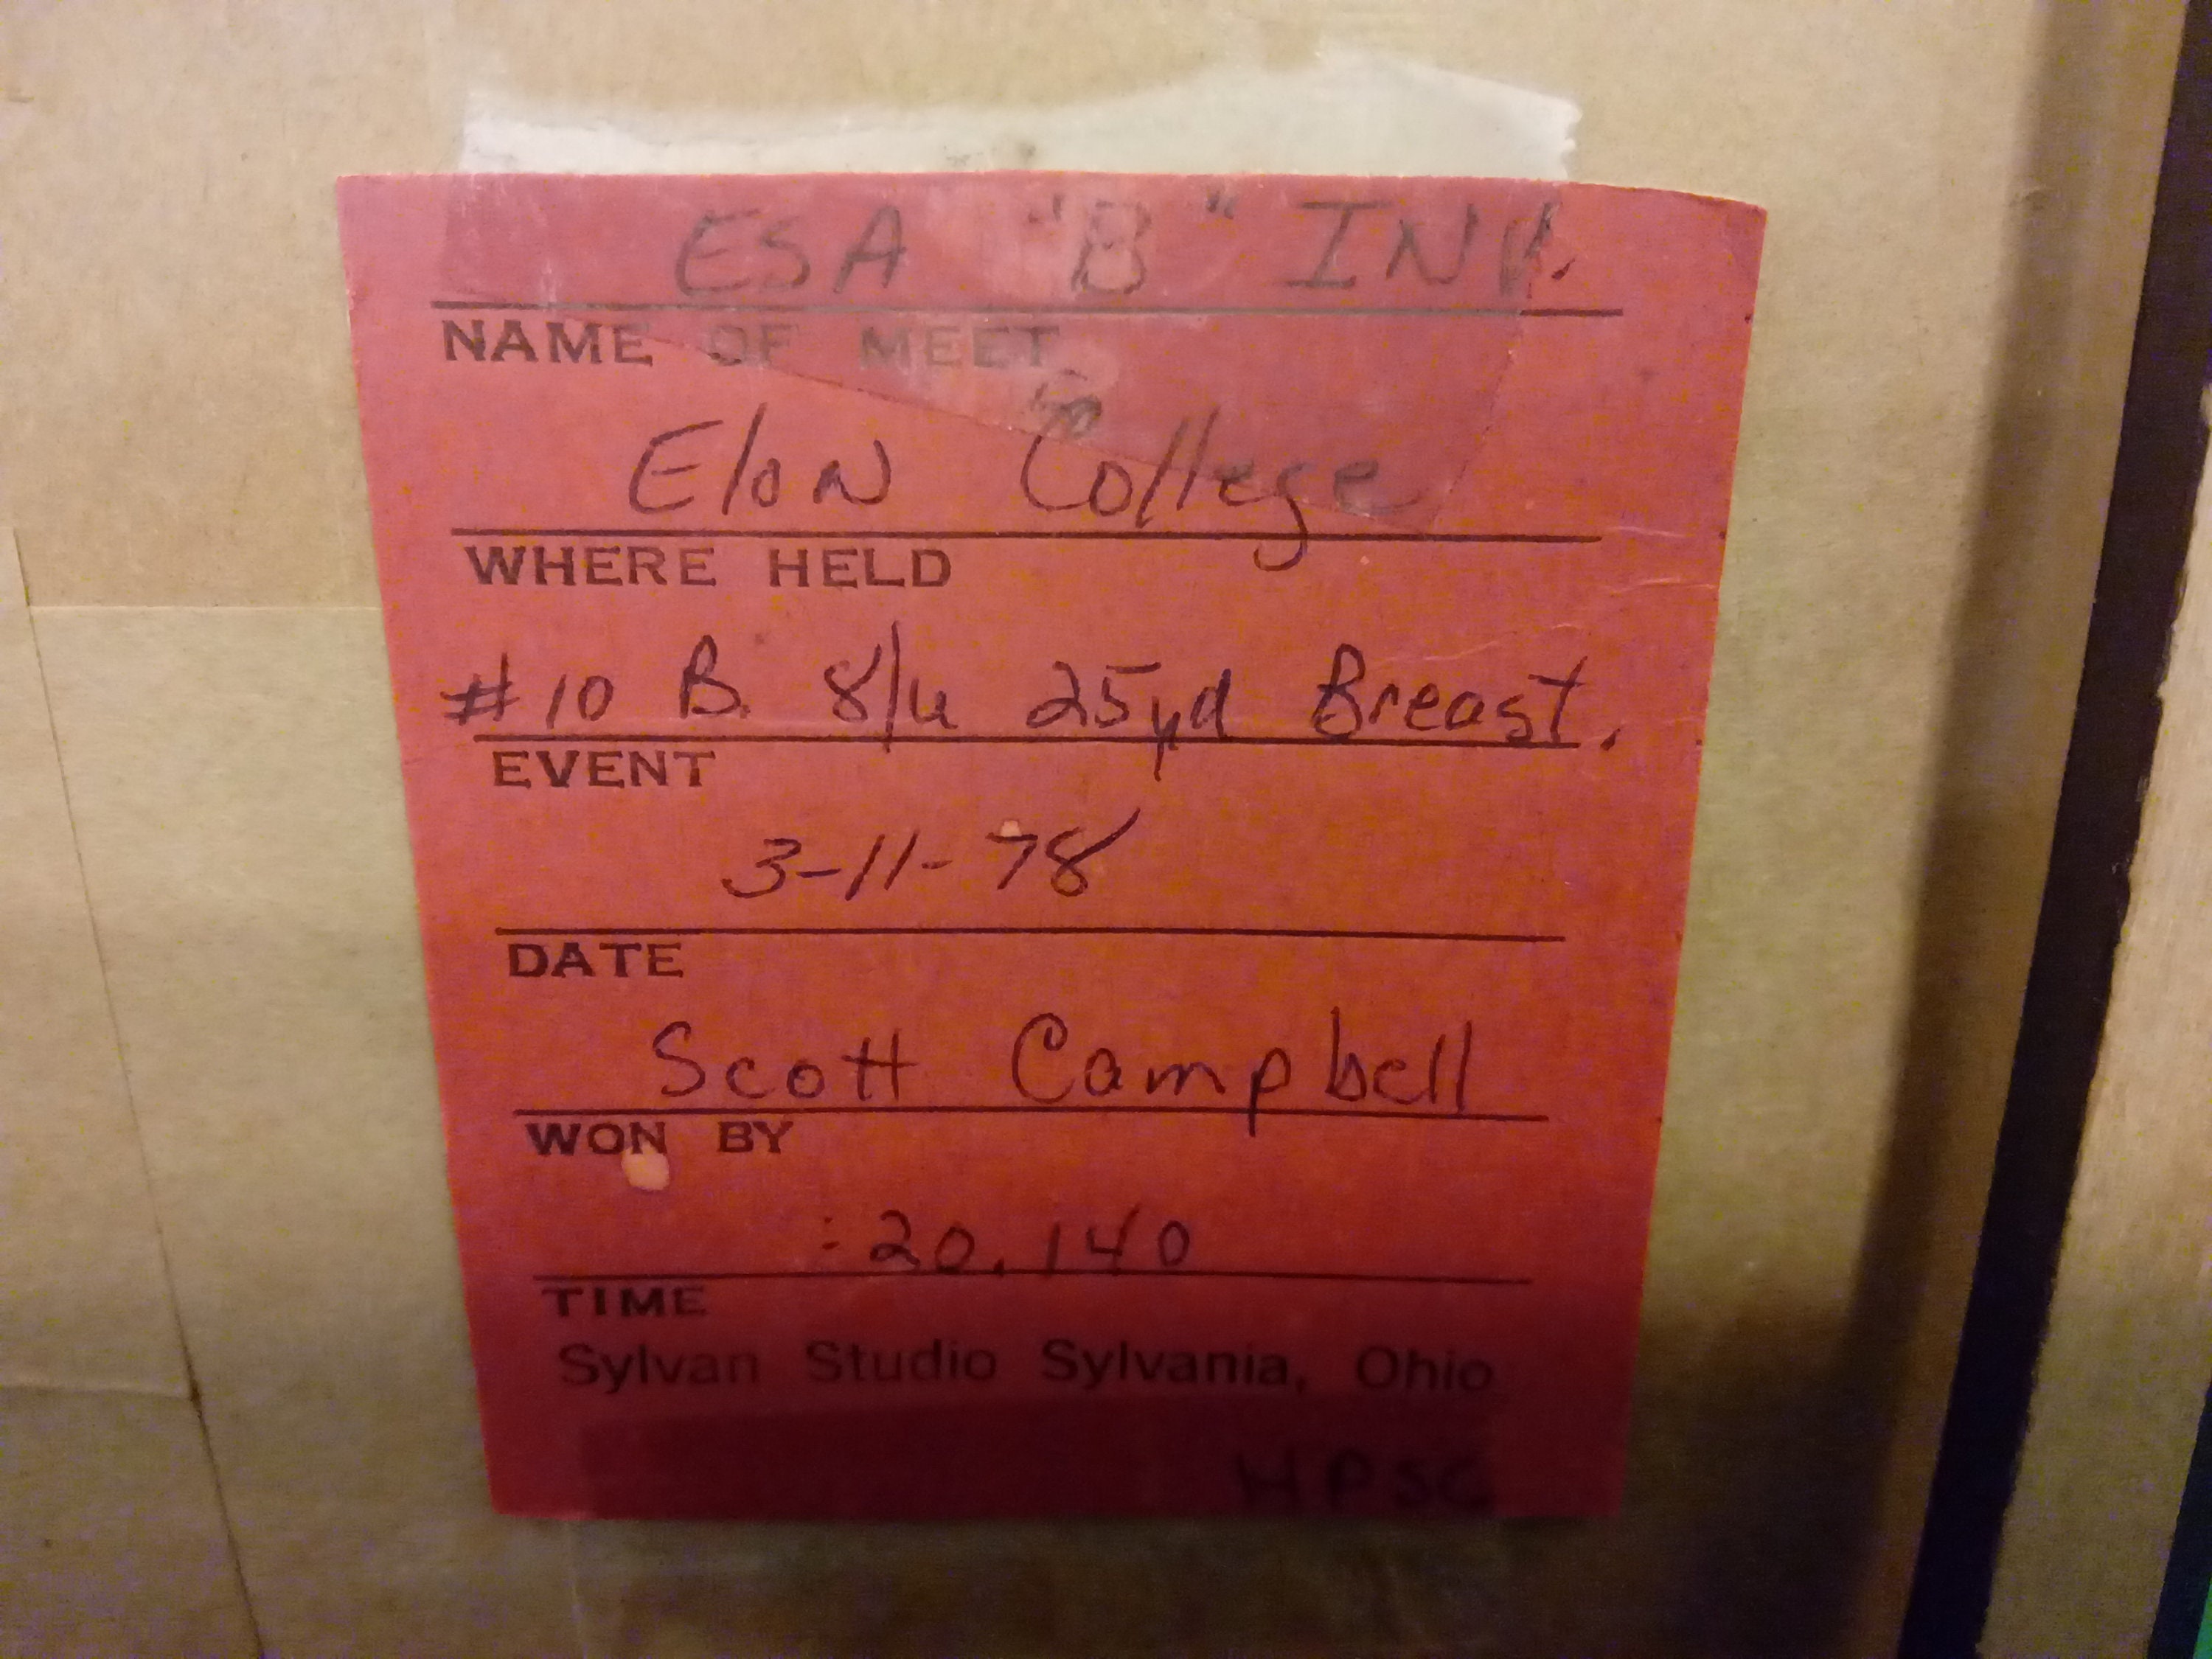 ESA "B" INV.
NAME OF MEET
Elon College
WHERE HELD
#10 B. 8/u 25yd Breast.
EVENT
3-11-78
DATE
Scott Campbell
WON BY
:20.140
TIME
Sylvan Studio Sylvania, Ohio
HPSC